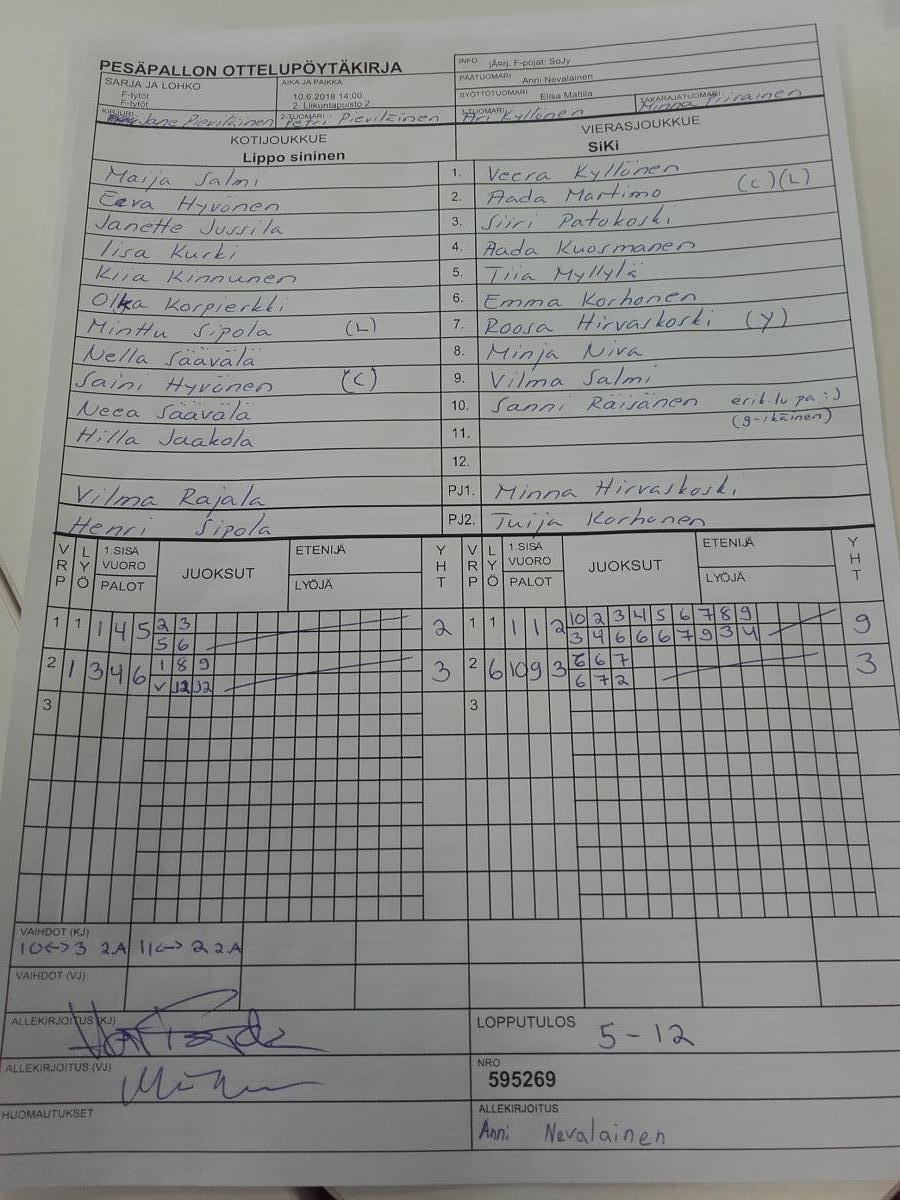 PESÄPALLON OTTELUPÖYTÄKIRJA
INFO jÄrrj. F-pojat: SoJy
SARJA JA LOHKO
F-tytöt
F-tytöt
AIKA JA PAIKKA
10.6.2018 14:00
2. Liikuntapuisto 2
PÄÄTUOMARI Anni Nevalainen
SYÖTTÖTUOMARI Elisa Mattila
TAKARAJATUOMARI Minna Piirainen
KIRJURI Jane Pieviläinen
2-TUOMARI Petri Pieviläinen
3-TUOMARI Ari Kyllönen
KOTIJOUKKUE
Lippo sininen
VIERASJOUKKUE
SiKi
Maija Salmi 1. Veera Kyllönen
Eeva Hyvönen 2. Aada Martimo (C)(L)
Janette Jussila 3. Siiri Patokoski
Iisa Kurki 4. Aada Kuosmanen
Kiia Kinnunen 5. Tiia Myllylä
Korpierkki 6. Emma Korhonen
Minttu Sipola (L) 7. Roosa Hirvaskoski (Y)
Nella Säävälä 8. Minja Niva
Saini Hyvönen (C) 9. Vilma Salmi
Neea Säävälä 10. Sanni Räisänen erik.lupa :)
(9-ikäinen)
Hilla Jaakola 11.
12.
Vilma Rajala PJ1. Minna Hirvaskoski
Henri Sipola PJ2. Tuija Korhonen
VRP LYÖ 1.SISÄ VUORO PALOT JUOKSUT ETENIJÄ LYÖJÄ YHT VRP LYÖ 1.SISÄ VUORO PALOT JUOKSUT ETENIJÄ LYÖJÄ YHT
1 1 1 4 5 2 3 2 1 1 1 1 2 10 2 3 4 5 6 7 8 9 9
5 6 3 4 6 6 6 7 9 3 4
2 1 3 4 6 1 8 9 3 2 6 10 9 3 6 7 3
V J2 J2 6 7 2
3 3
VAIHDOT (KJ)
10<->3 2A 11<->2 2A
VAIHDOT (VJ)
ALLEKIRJOITUS (KJ)
LOPPUTULOS 5-12
ALLEKIRJOITUS (VJ)
NRO
595269
HUOMAUTUKSET
ALLEKIRJOITUS
Anni Nevalainen